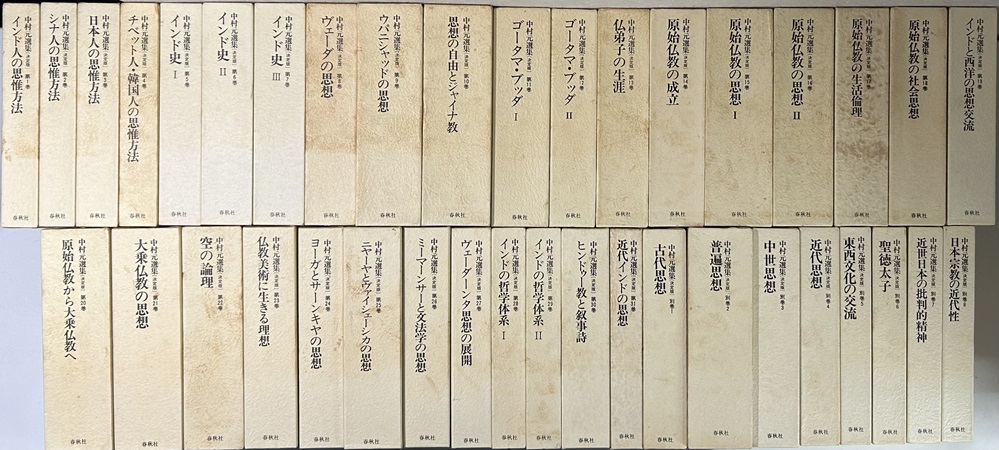 中村元選集 決定版 第1巻 インド人の思惟方法 春秋社
中村元選集 決定版 第2巻 シナ人の思惟方法 春秋社
中村元選集 決定版 第3巻 日本人の思惟方法 春秋社
中村元選集 決定版 第4巻 チベット人・韓国人の思惟方法 春秋社
中村元選集 決定版 第5巻 インド史 Ⅰ 春秋社
中村元選集 決定版 第6巻 インド史 Ⅱ 春秋社
中村元選集 決定版 第7巻 インド史 Ⅲ 春秋社
中村元選集 決定版 第8巻 ヴェーダの思想 春秋社
中村元選集 決定版 第9巻 ウパニシャッドの思想 春秋社
中村元選集 決定版 第10巻 思想の自由とジャイナ教 春秋社
中村元選集 決定版 第11巻 ゴータマ・ブッダ Ⅰ 春秋社
中村元選集 決定版 第12巻 ゴータマ・ブッダ Ⅱ 春秋社
中村元選集 決定版 第13巻 仏弟子の生涯 春秋社
中村元選集 決定版 第14巻 原始仏教の成立 春秋社
中村元選集 決定版 第15巻 原始仏教の思想 Ⅰ 春秋社
中村元選集 決定版 第16巻 原始仏教の思想 Ⅱ 春秋社
中村元選集 決定版 第17巻 原始仏教の生活倫理 春秋社
中村元選集 決定版 第18巻 原始仏教の社会思想 春秋社
中村元選集 決定版 第19巻 インドと西洋の思想交流 春秋社
中村元選集 決定版 第20巻 原始仏教から大乗仏教へ 春秋社
中村元選集 決定版 第21巻 大乗仏教の思想 春秋社
中村元選集 決定版 第22巻 空の論理 春秋社
中村元選集 決定版 第23巻 仏教美術に生きる理想 春秋社
中村元選集 決定版 第24巻 ヨーガとサーンキヤの思想 春秋社
中村元選集 決定版 第25巻 ニヤーヤとヴァイシェーシカの思想 春秋社
中村元選集 決定版 第26巻 ミーマーンサーと文法学の思想 春秋社
中村元選集 決定版 第27巻 ヴェーダーンタ思想の展開 春秋社
中村元選集 決定版 第28巻 インドの哲学体系 Ⅰ 春秋社
中村元選集 決定版 第29巻 インドの哲学体系 Ⅱ 春秋社
中村元選集 決定版 第30巻 ヒンドゥー教と叙事詩 春秋社
中村元選集 決定版 第31巻 近代インドの思想 春秋社
中村元選集 決定版 別巻1 古代思想 春秋社
中村元選集 決定版 別巻2 普遍思想 春秋社
中村元選集 決定版 別巻3 中世思想 春秋社
中村元選集 決定版 別巻4 近代思想 春秋社
中村元選集 決定版 別巻5 東西文化の交流 春秋社
中村元選集 決定版 別巻6 聖徳太子 春秋社
中村元選集 決定版 別巻7 近世日本の批判的精神 春秋社
中村元選集 決定版 別巻8 日本宗教の近代性 春秋社